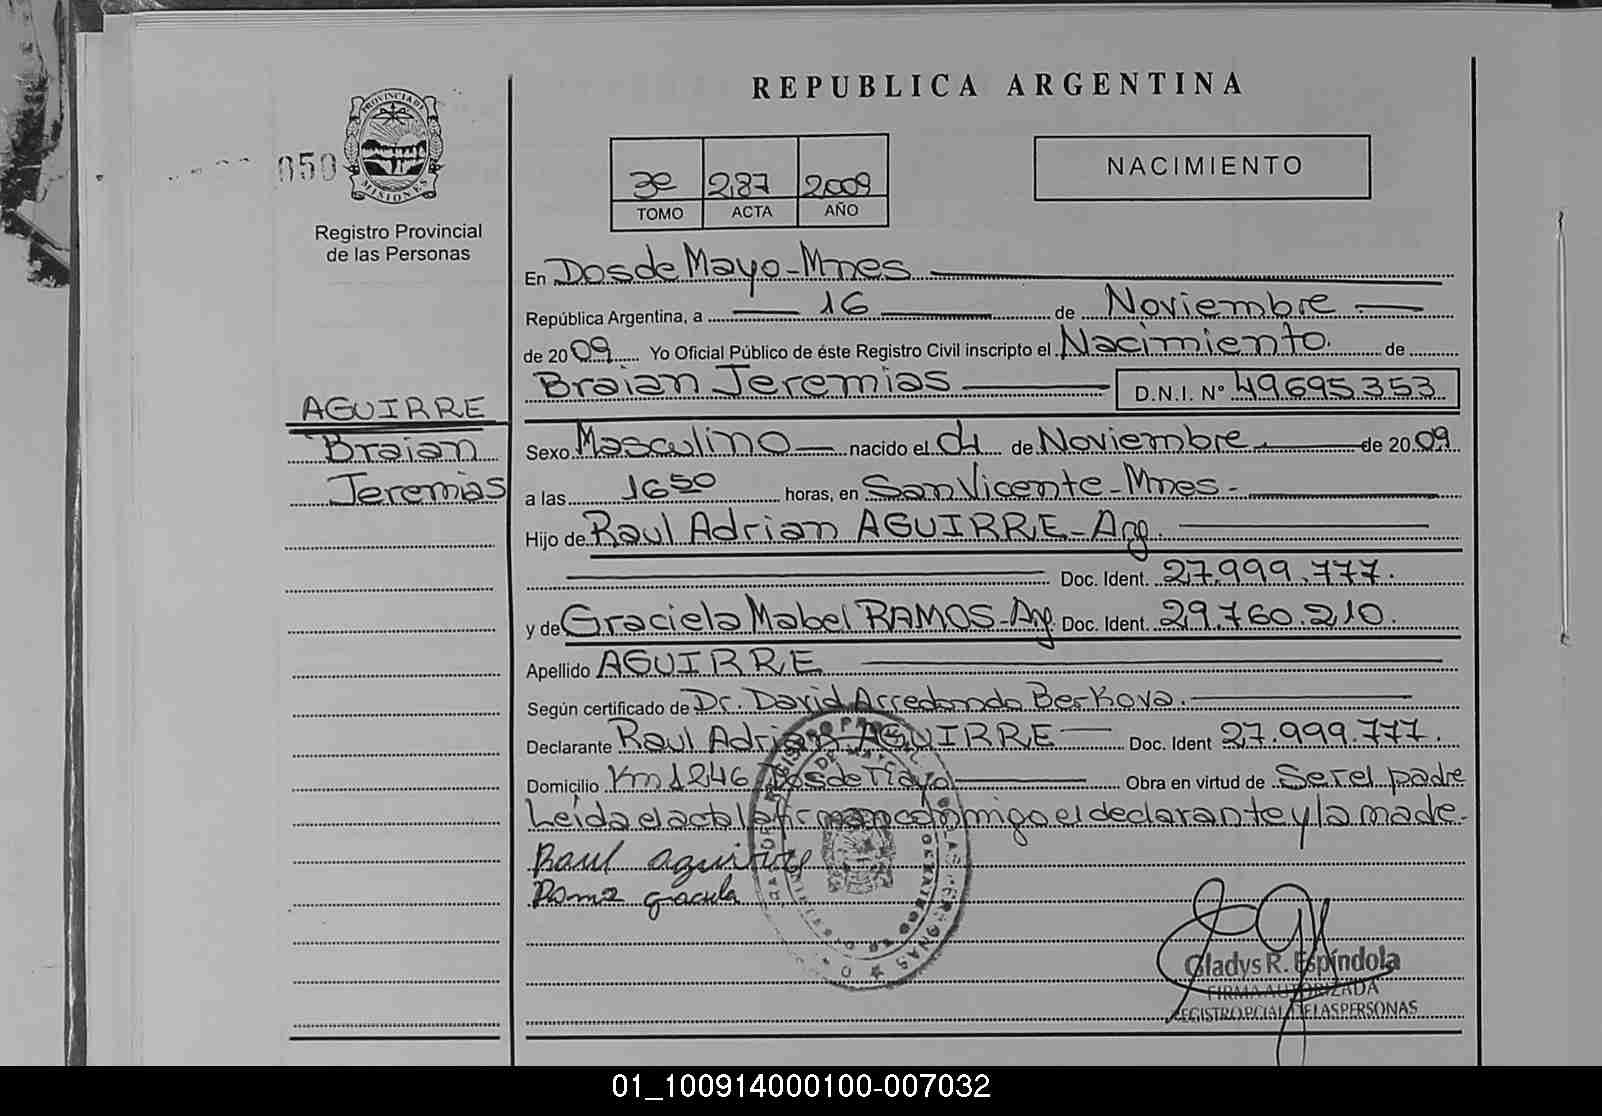 REPUBLICA ARGENTINA
PROVINCIA DE MISIONES
050
Registro Provincial
de las Personas
3º 287 2009
TOMO ACTA AÑO
NACIMIENTO
En Dos de Mayo - Mnes
República Argentina, a 16 de Noviembre
de 2009 Yo Oficial Público de éste Registro Civil inscripto el Nacimiento de
Braian Jeremias D.N.I. Nº 49695353
AGUIRRE
Braian
Jeremias
Sexo Masculino nacido el 01 de Noviembre de 2009
a las 16 50 horas, en San Vicente - Mnes -
Hijo de Raul Adrian AGUIRRE - Arg.
Doc. Ident. 27.999.777.
y de Graciela Mabel RAMOS - Arg. Doc. Ident. 29.760.210.
Apellido AGUIRRE
Según certificado de Dr. David Arredondo Berkova.
Declarante Raul Adrian AGUIRRE Doc. Ident 27.999.777.
Domicilio Km 1246 Dos de Mayo Obra en virtud de Ser el padre
Leída el acta la firman conmigo el declarante y la made.
Raul aguirre
Gladys R. Espíndola
FIRMA AUTORIZADA
REGISTRO PCIAL DE LAS PERSONAS
01_100914000100-007032